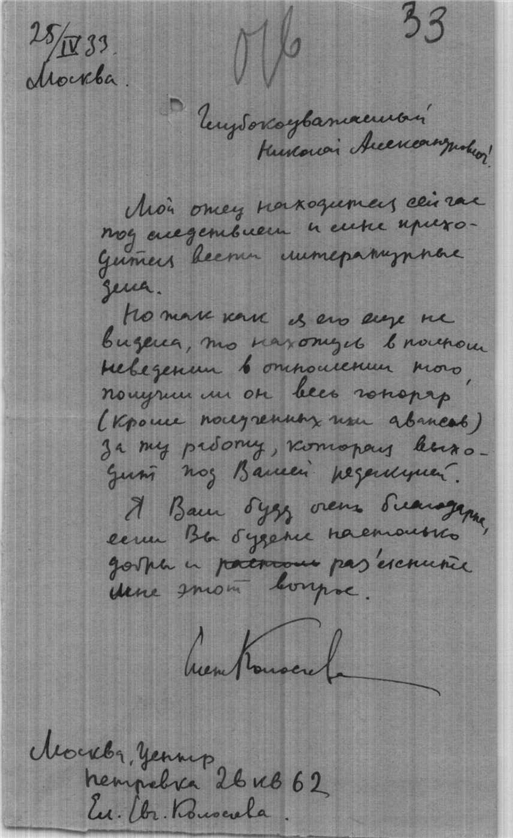 33
25/IV 33.
Москва.
Глубокоуважаемый
Николай Александрович!
Мой отец находится сейчас
под следствием и мне прихо-
дится вести литературные
дела.
Но так как я его еще не
видела, то нахожусь в полном
неведении в отношении того,
получил ли он весь гонорар
(кроме полученных им авансов)
за ту работу, которая выхо-
дит под Вашей редакцией.
Я Вам буду очень благодарна,
если Вы будете настолько
добры и раз'ясните
мне этот вопрос.
Колосова
Москва, центр
Петровка 26 кв 62
Ел. Евг. Колосова.